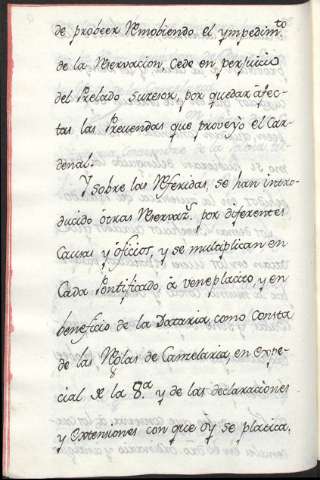 de probeer Remobiendo el ympedim.to
de la Reservacion, Cede en perjuicio
del Prelado Sucesor, por quedar afec-
tas las Prevendas que proveyò el Car-
denal.
Y sobre las Referidas, se han intro-
ducido ótras Reservaz.s por diferentes
Causas y óficios, y se multiplican en
Cada Pontificado, à veneplacito, y en
beneficio de la Dataria, como Consta
de las Reglas de Cancelaria, en Espe-
cial de la 8.a y de las declaraciones
y Extensiones con que óy se placica,